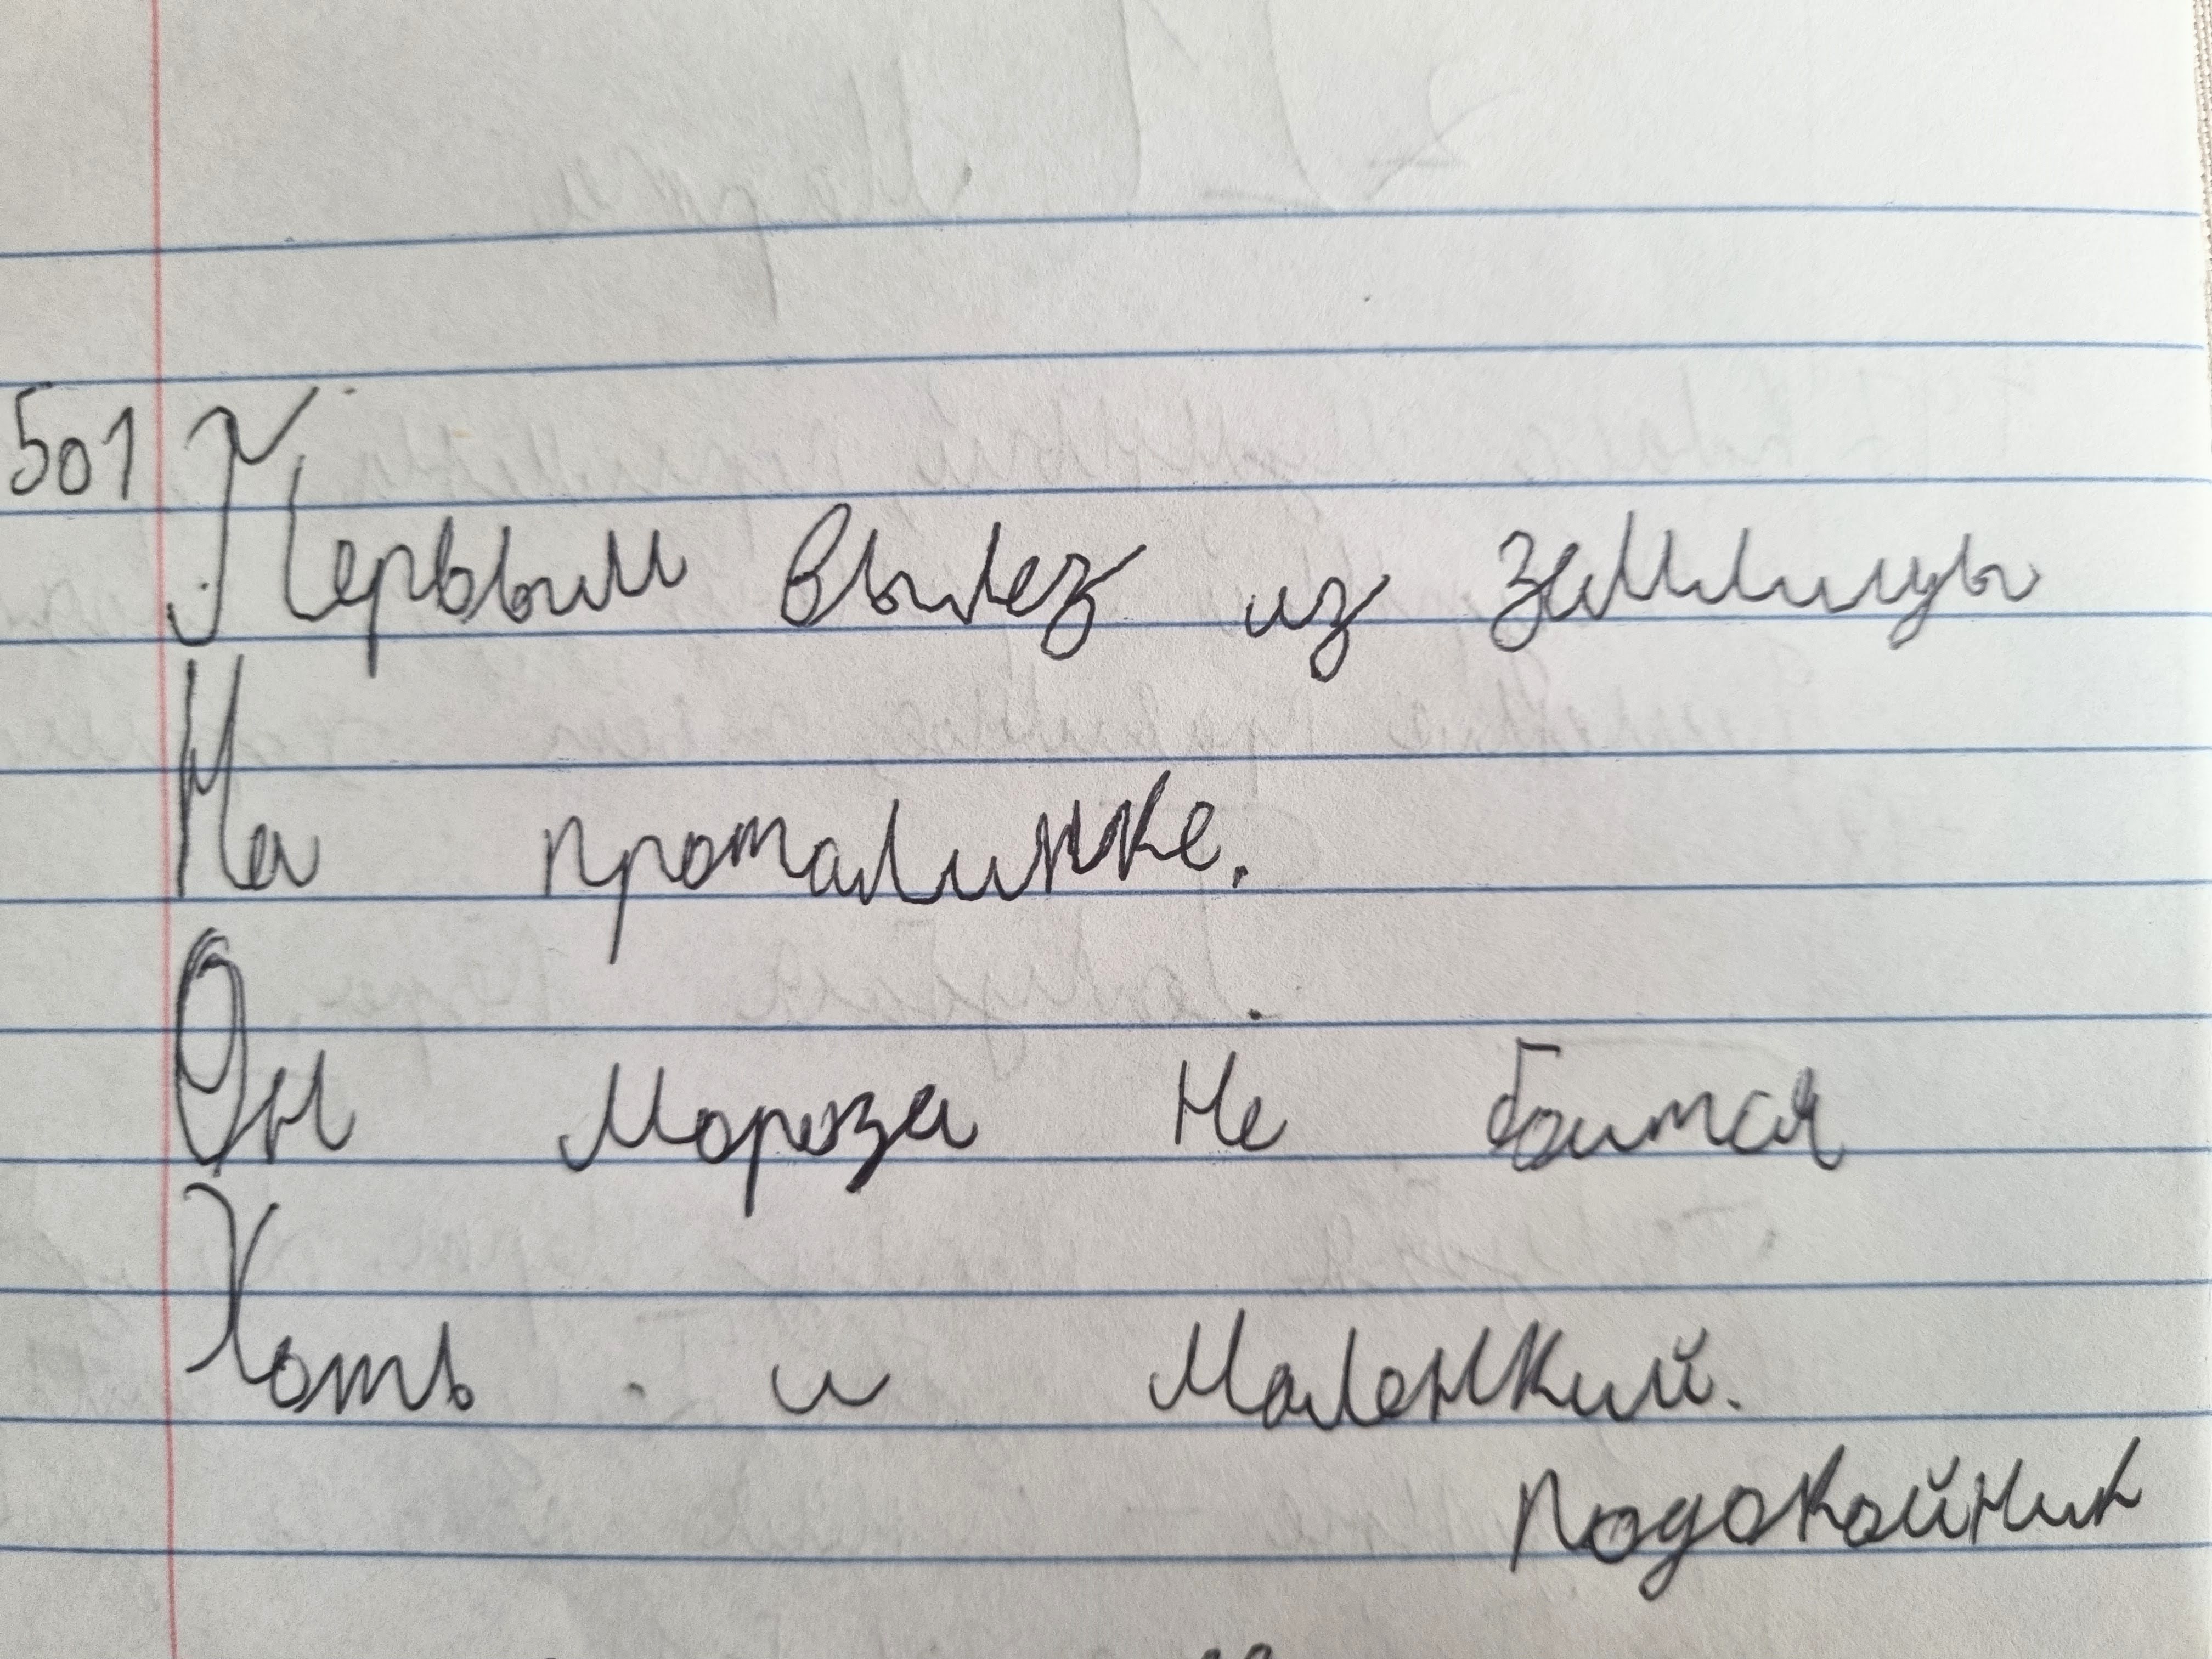 501 Первым вылез из землицы
На проталинке.
Он мороза не боится
Хоть и маленкий.
подокойник